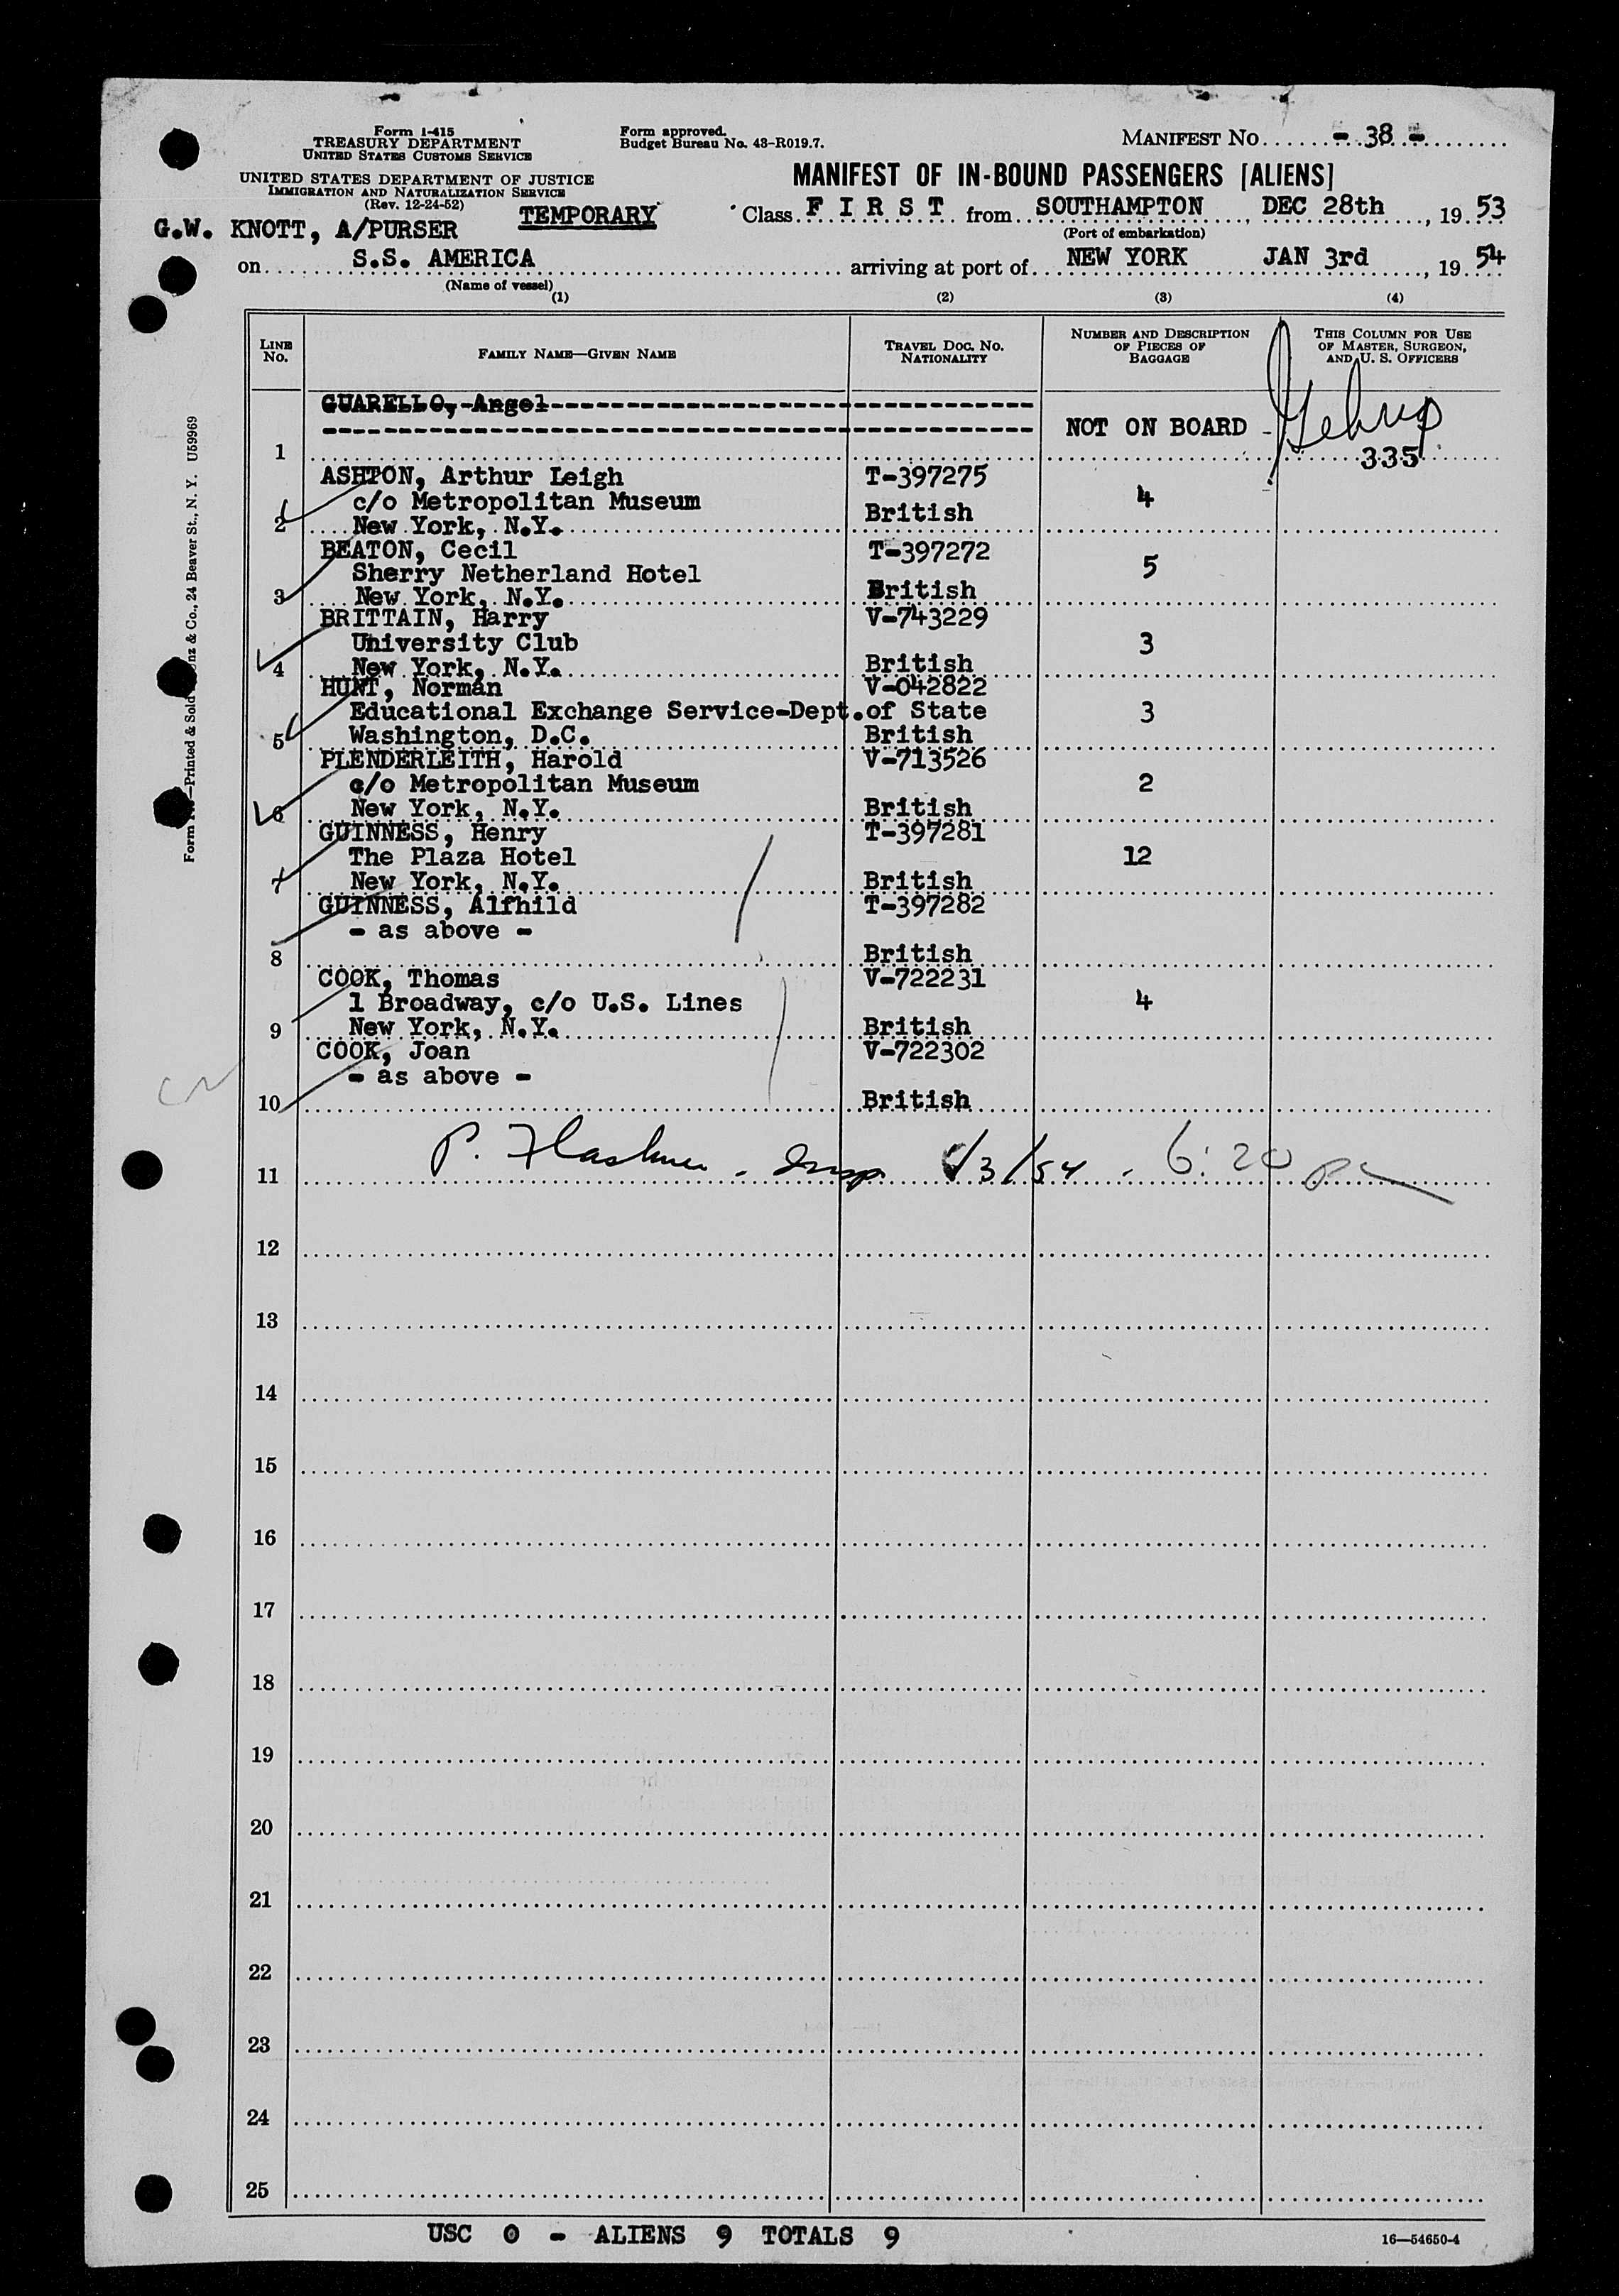 Form I-415
TREASURY DEPARTMENT
UNITED STATES CUSTOMS SERVICE
UNITED STATES DEPARTMENT OF JUSTICE
IMMIGRATION AND NATURALIZATION SERVICE
(Rev. 12-24-52)
Form approved.
Budget Bureau No. 43-R019.7.
MANIFEST No. - 38 -
MANIFEST OF IN-BOUND PASSENGERS [ALIENS]
G.W. KNOTT, A/PURSER TEMPORARY Class F I R S T from SOUTHAMPTON, DEC 28th, 19 53
(Port of embarkation)
on S.S. AMERICA arriving at port of NEW YORK JAN 3rd, 19 54
(Name of vessel)
(1) (2) (3) (4)
LINE No. FAMILY NAME—GIVEN NAME TRAVEL DOC. NO. NATIONALITY NUMBER AND DESCRIPTION OF PIECES OF BAGGAGE THIS COLUMN FOR USE OF MASTER, SURGEON, AND U. S. OFFICERS
GUARELLO, Angel
NOT ON BOARD
1 335
ASHTON, Arthur Leigh T-397275
c/o Metropolitan Museum 4
2 New York, N.Y. British
BEATON, Cecil T-397272
Sherry Netherland Hotel 5
3 New York, N.Y. British
BRITTAIN, Harry V-743229
University Club 3
4 New York, N.Y. British
HUNT, Norman V-042822
Educational Exchange Service-Dept.of State 3
5 Washington, D.C. British
PLENDERLEITH, Harold V-713526
c/o Metropolitan Museum 2
6 New York, N.Y. British
GUINNESS, Henry T-397281
The Plaza Hotel 12
7 New York, N.Y. British
GUINNESS, Alfhild T-397282
- as above -
8 British
COOK, Thomas V-722231
1 Broadway, c/o U.S. Lines 4
9 New York, N.Y. British
COOK, Joan V-722302
- as above -
10 British
11 P. - Insp 1/3/54 - 6:20
12
13
14
15
16
17
18
19
20
21
22
23
24
25
USC 0 - ALIENS 9 TOTALS 9
16—54650-4
Form —Printed & Sold nz & Co., 24 Beaver St., N. Y. U59969